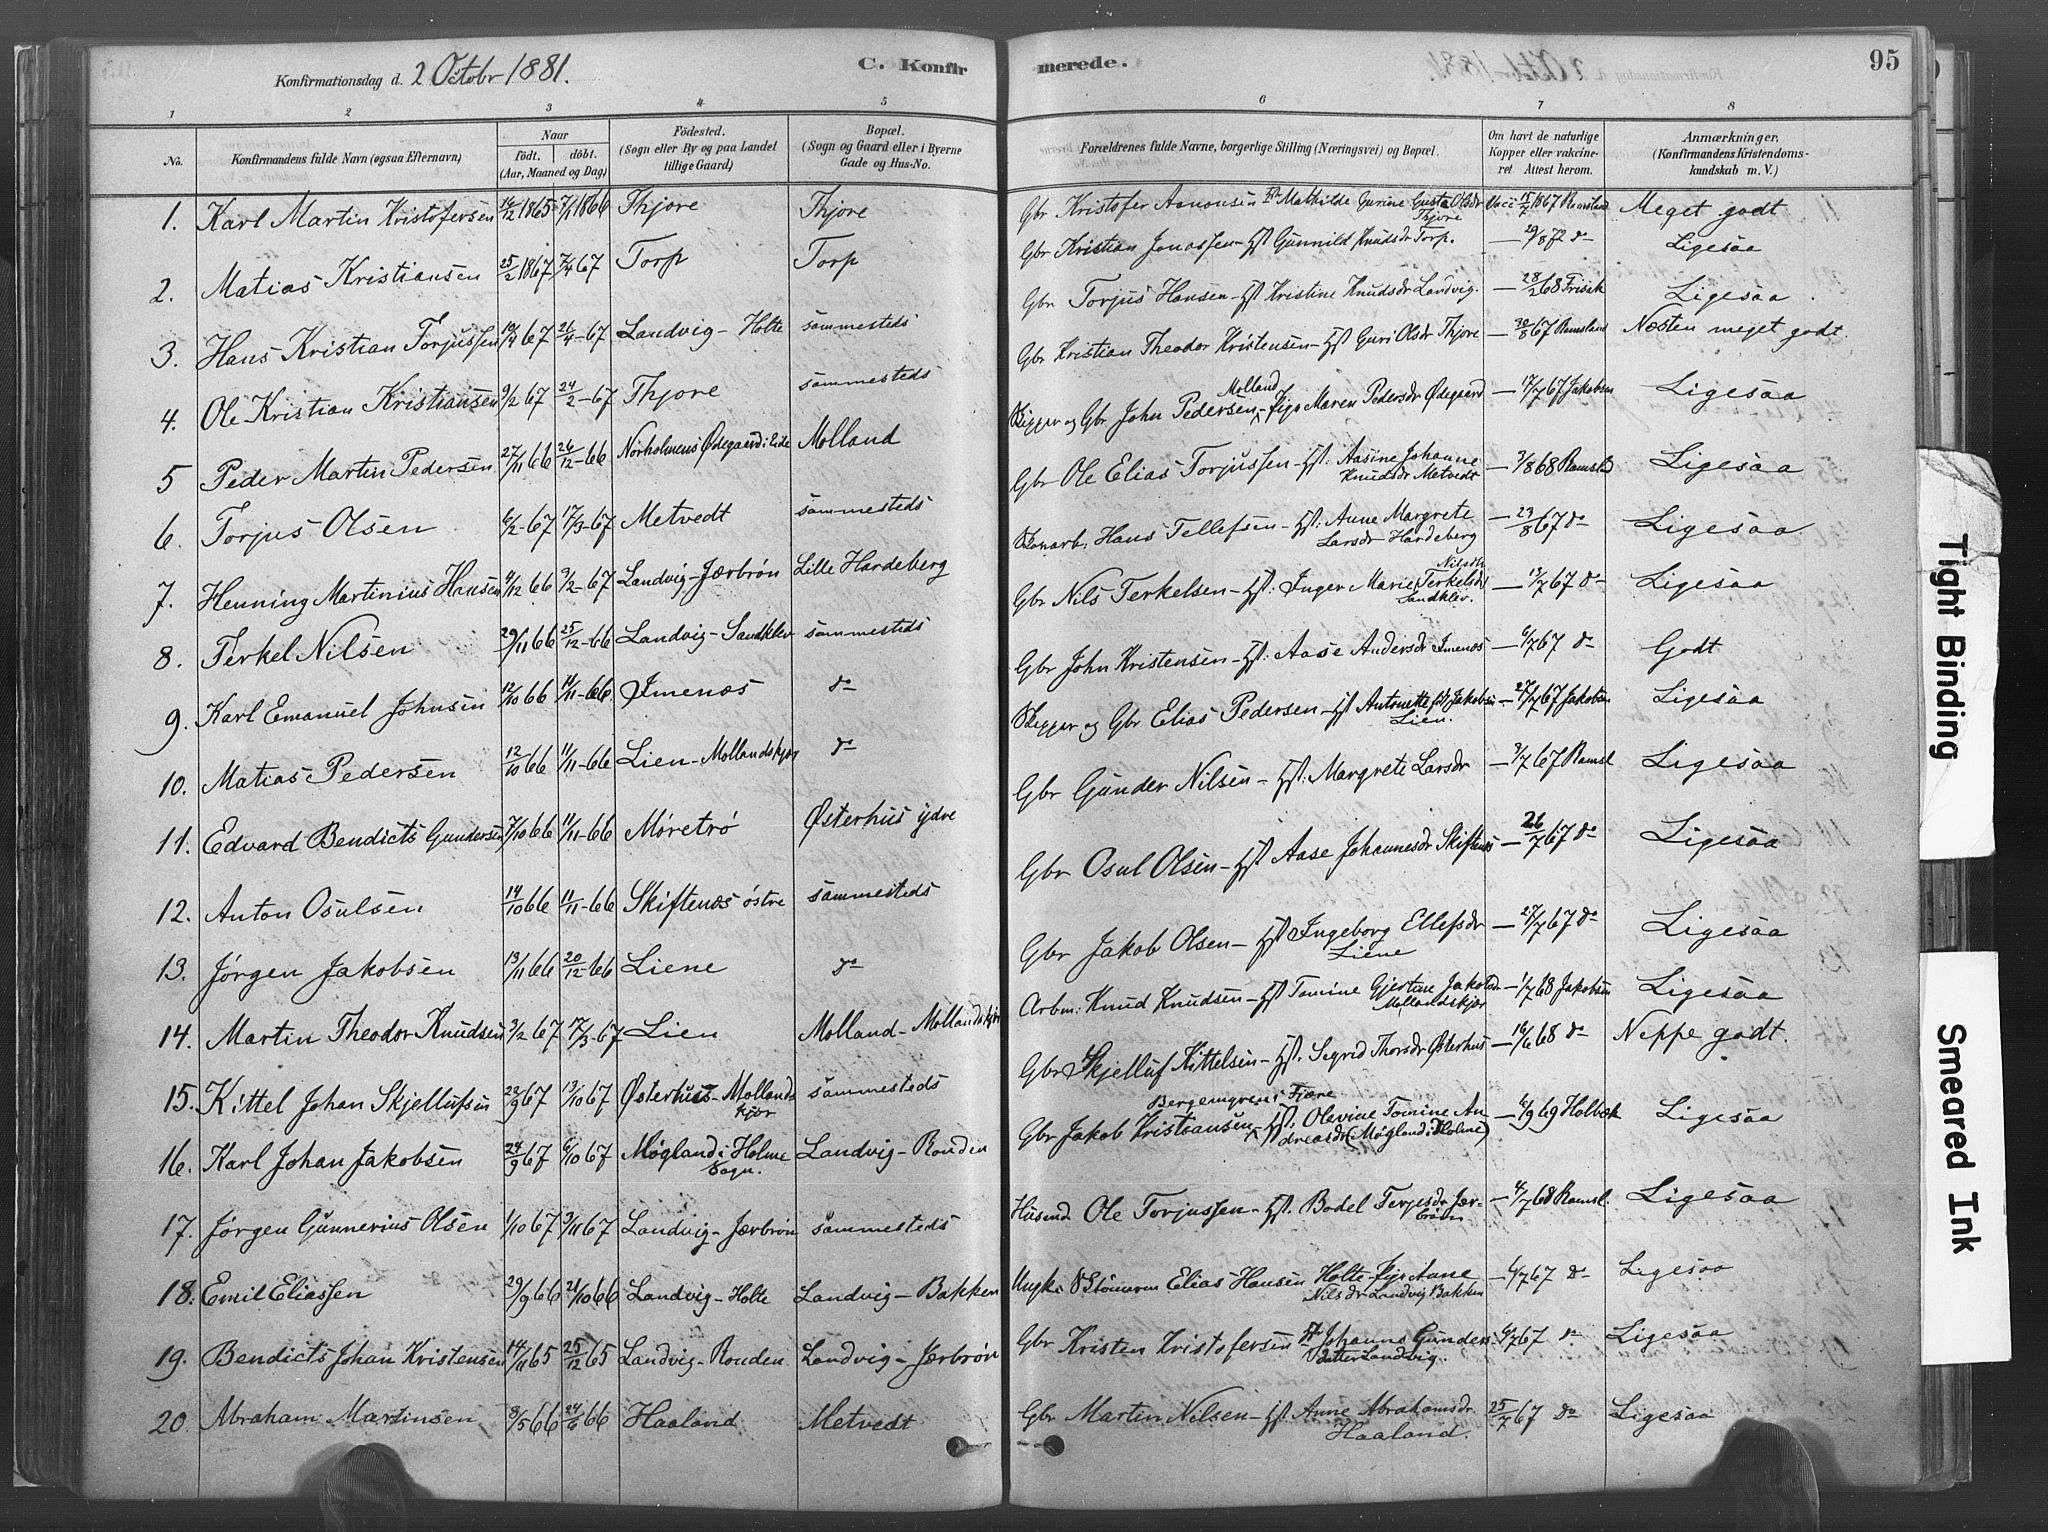 Konfirmationsdag d. 2 Octobr 1881.
C. Konfirmerede.
95
1 2 3 4 5 6 7 8
No.
Konfirmandens fulde Navn (ogsaa Efternavn)
Naar
födt. döbt.
(Aar, Maaned og Dag)
Födested.
(Sogn eller By og paa Landet
tillige Gaard)
Bopæl.
(Sogn og Gaard eller i Byerne
Gade og Hus-No.
Forældrenes fulde Navne, borgerlige Stilling (Næringsvei) og Bopæl.
Om havt de naturlige
Kopper eller vakcineret.
Attest herom.
Anmærkninger.
(Konfirmandens Kristendomskundskab
m. V.)
1. Karl Martin Kristofersen 16/12 1865 7/1 1866 Thjore Thjore Gbr Kristofer Aanonsen Mathilde Gurine Gusta Olsdr Thjore Vacc 15/7 1867 Ramsland Meget godt
2. Matias Kristiansen 25/2 1867 7/4 67 Torp Torp Gbr Kristian Jonassen – Hst Gunnild Knudsdr Torp. — 29/8 72 do Ligesaa
3. Hans Kristian Torjussen 10/4 67 26/4 - 67 Landvig - Holte sammesteds Gbr Torjus Hansen – Hst Kristine Knudsdr Landvig. — 28/2 68 Frisak Ligesaa
4. Ole Kristian Kristiansen 9/2 67 24/2 - 67 Thjore sammesteds Gbr Kristian Theodor Kristensen – Hst Guri Olsdr Thjore — 30/8 67 Ramsland Næsten meget godt.
5 Peder Martin Pedersen 27/11 66 26/12 - 66 Norholmens Ødegaard i Eide Molland Skipper og Gbr John Pedersen Molland – Pige Maren Pedersdr Ødegaard — 17/7 67 Jakobsen Ligesaa
6. Torjus Olsen 6/2 - 67 17/3 - 67 Metvedt sammesteds Gbr Ole Elias Torjussen – Hst: Aasine Johanne Knudsdr Metvedt — 3/8 68 Ramsld Ligesaa
7. Henning Martinius Hansen 4/12 66 3/2 - 67 Landvig - Jærbrön Lille Hardeberg Hans Tellefsen – Hst: Anne Margrete Larsdr Hardeberg — 23/8 67 do Ligesaa
8. Terkel Nilsen 29/11 66 25/12 - 66 Landvig - Sandklev sammesteds Gbr Nils Terkelsen – Hst: Inger Marie Nilsdtr Terkelsdr Sandklev. — 13/7 67 do Ligesaa
9. Karl Emanuel Johnsen 12/10 66 11/11 - 66 Imenæs do Gbr John Kristensen – Hst: Aase Andersdr Imenæs — 6/7 67 do Godt
10. Matias Pedersen 12/10 66 11/11 - 66 Lien - Mollandskjær do Skipper og Gbr Elias Pedersen – Hst Antonette Jakobsen Lien. — 27/7 67 Jakobsen Ligesaa
11. Edvard Bendicts Gundersen 7/10 66 11/11 - 66 Møretrø Østerhus ydre Gbr Gunder Nilsen – Hst: Margrete Larsdr — 3/7 67 Ramsl Ligesaa
12. Anton Osulsen 14/10 66 11/11 - 66 Skiftenæs østre sammesteds Gbr Osul Olsen – Hst Aase Johannesdr Skiftenæs — 26/7 67 do Ligesaa
13. Jørgen Jakobsen 13/11 66 20/12 - 66 Liene do Gbr Jakob Olsen – Hst Ingeborg Ellefsdr Liene — 27/7 67 do Ligesaa
14. Martin Theodor Knudsen 3/2 67 17/3 - 67 Lien Molland - Mollandskjær Arbm: Knud Knudsen – Hst Tomine Gjertine Jakobsdr Mollandskjær — 1/7 68 Jakobsen Ligesaa
15. Kittel Johan Skjellufsen 22/9 67 13/10 67 Østerhus - Mollandskjær sammesteds Gbr Skjelluf Kittelsen – Hst. Segrid Thorsdr Østerhus — 16/6 68 do Neppe godt.
16. Karl Johan Jakobsen 24/9 67 6/10 67 Møgland i Holme Sogn. Landvig - Ronden Gbr Jakob Kristiansen Bergemyren i Fjære – Hst. Olevine Tomine Andreasdr (Møgland i Holme) — 6/9 69 Holbæk Ligesaa
17. Jørgen Gunnerius Olsen 1/10 67 3/11 67 Landvig - Jærbrön sammesteds Husmd. Ole Torjussen – Hst. Bodel Terjesdr Jærbrön — 4/7 68 Ramsl. Ligesaa
18. Emil Eliassen 29/9 66 21/10 66 Landvig - Holte Landvig - Bakken Ungk: Elias Hansen Holte – Pige Anne Nilsdr Landvig Bakken — 4/7 67 do Ligesaa
19. Bendicts Johan Kristensen 14/11 65 25/12 65 Landvig - Ronden Landvig - Jærbrön Gbr Kristen Kristofersen Hst Johanne Gundersdatter Landvig. — 4/7 67 do Ligesaa
20. Abraham Martinsen 8/5 66 24/6 66 Haaland Metvedt Gbr Martin Nilsen – Hst Anne Abrahamsdr Haaland. 25/7 67 do Ligesaa
Tight Binding
Smeared Ink